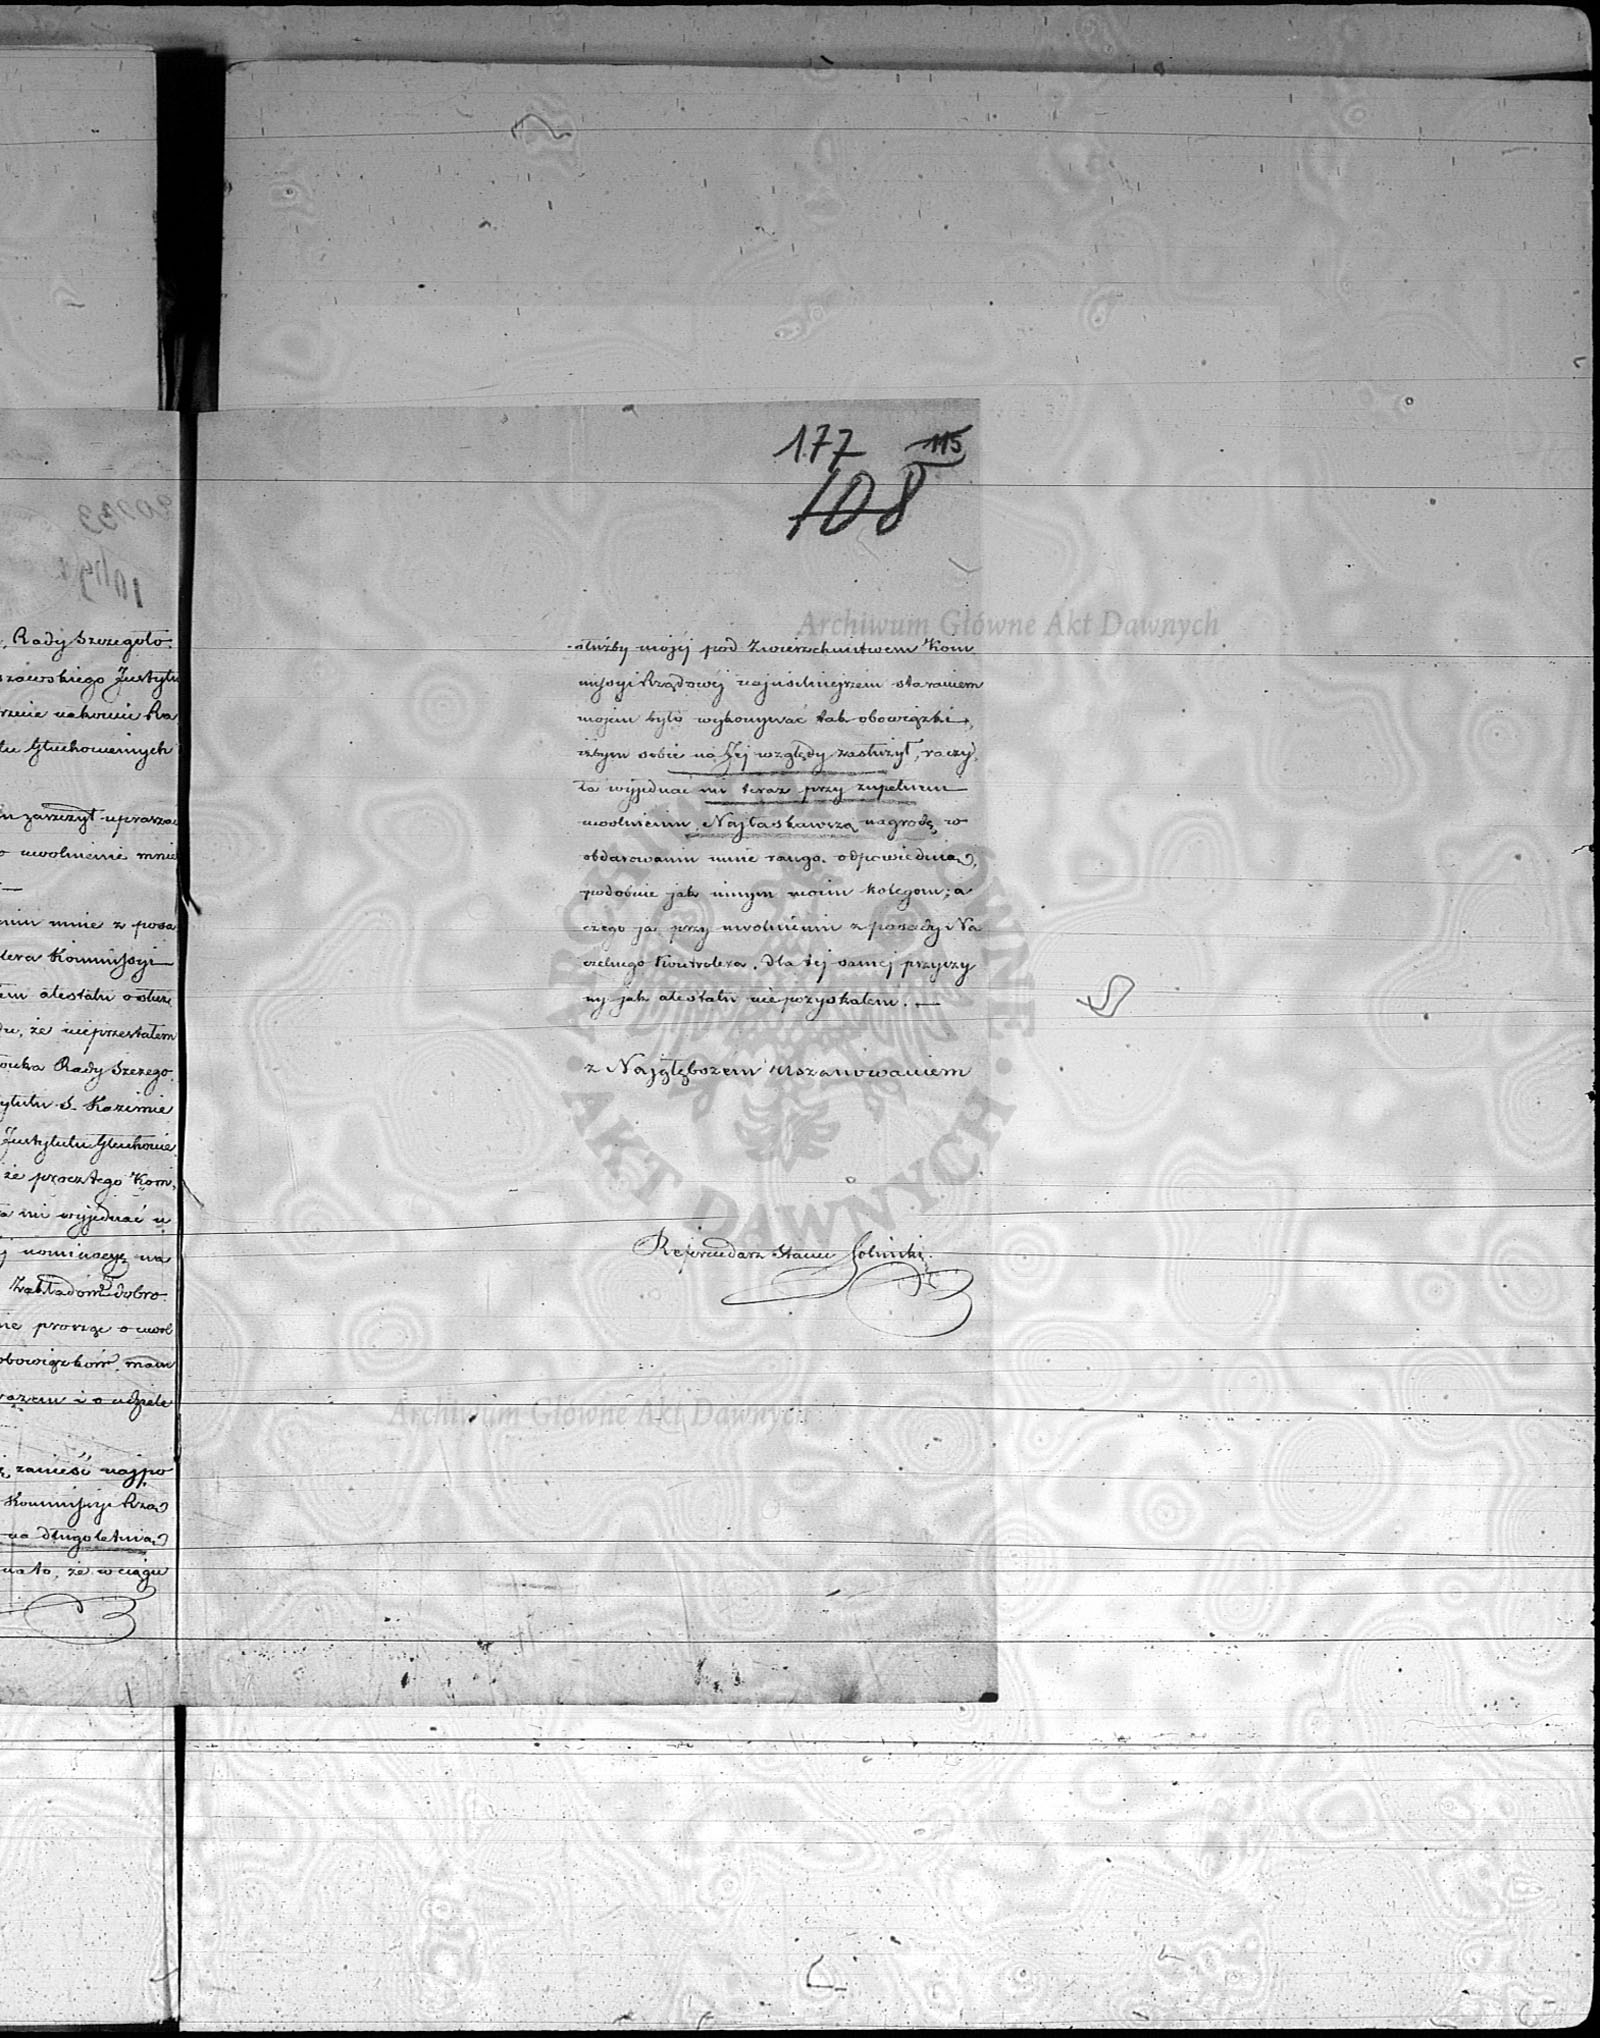 Rady Szczegoło
szawskiego Instytu
rzenie nakoniec Ra
tu Głuchoniemych
zaszczyt upraszać
o uwolnienie mnie
eniu mnie z posa
lera Kommissyi
tem atestatu o służ
du, że nieprzestałem
onka Rady Szczegó
ytutu S. Kazimie
Instytutu Głuchonie
że prócz tego Kom
mi wyjednać u
nominacyę na
Zakładom dobro
nie proszę o uwol
obowiązków, mam
razem i o udziele
zanieść najpo
Kommissyi Rzą
na długoletnią
na to, że w ciągu
177 115
108
służby mojej pod Zwierzchnictwem Kom
missyi Rządowej najusilniejszem staraniem
mojem było wykonywać tak obowiązki,
iżbym sobie na Jej względy zasłużył, raczy
ła wyjednać mi teraz przy zupełnem
uwolnieniu, Najłaskawszą nagrodę, w
obdarowaniu mnie rangą odpowiednią,
podobnie jak innym moim kolegom; a
czego ja przy uwolnieniu z posady Na
czelnego Kontrolera, dla tej samej przyczy
ny jak atestatu niepozyskałem. —
z Najgłębszem Uszanowaniem
Referendarz Stanu Soliński
Archiwum Główne Akt Dawnych
ARCHIWUM GŁÓWNE · AKT DAWNYCH ·
Archiwum Główne Akt Dawnych